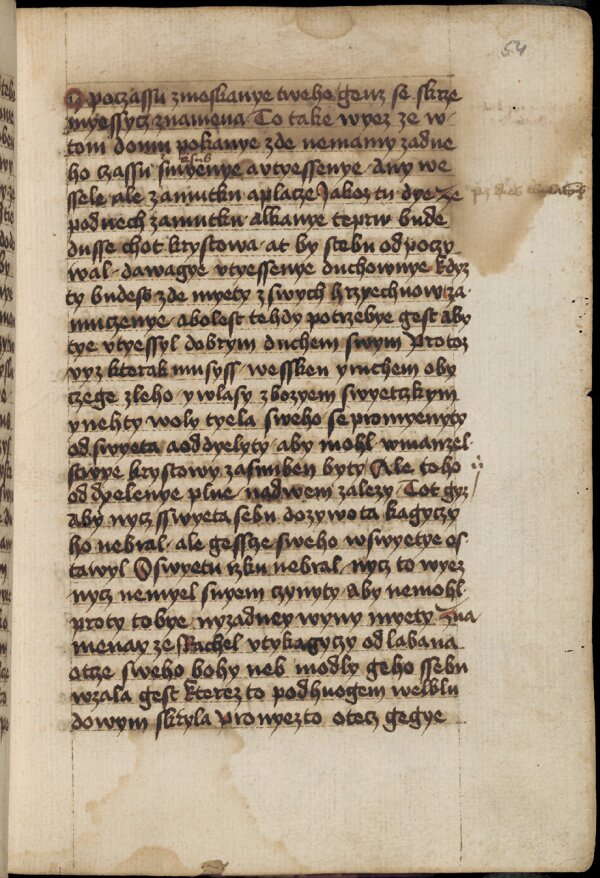 54
O poczassu zmeskanye tweho genz se skrze
myessycz znamena To take wyez ze w
tom domu pokanye zde nemamy zadne
ho czassu smyenye a vtyessenye Any we
sele ale zamutku aplacze Jakoz tu dye ze
podnech zamutku alkanye teprw bude
dusse chot krystowa at by s tebu odpoczy
wal dawagye vtyessenye duchownye kdyz
ty budess zde myety z swych hrzyechuow za
muczenye abolest tehdy potrzebye gest aby
tye vtyessyl dobrym duchem swym Protoz
vyz kterak musyss wessken y ruchem oby
czege zleho y wlasy z bozyem swyetczkym
y nehty woly tyela sweho se promyenyty
od swyeta a oddyelyty aby mohl w manzel
stwye krystowy zasnuben byty Ale toho
oddyelenye plne na dwem zalezy Tot gyz
aby nycz s swyeta sebu do zywota kagyczy
ho nebral ale gesscze sweho w swyetye os
tawyl O swyetu rzku nebral nycz to wyez
nycz nemyel snyem czynyty aby nemohl
proty tobye nyzadney wyny myety Zna
menay ze Rachel vtykagyczy od labana
otcze sweho bohy neb modly geho ssebu
wzala gest kterez to pod hnogem welblu
dowym skryla Pronyezto otecz gegye